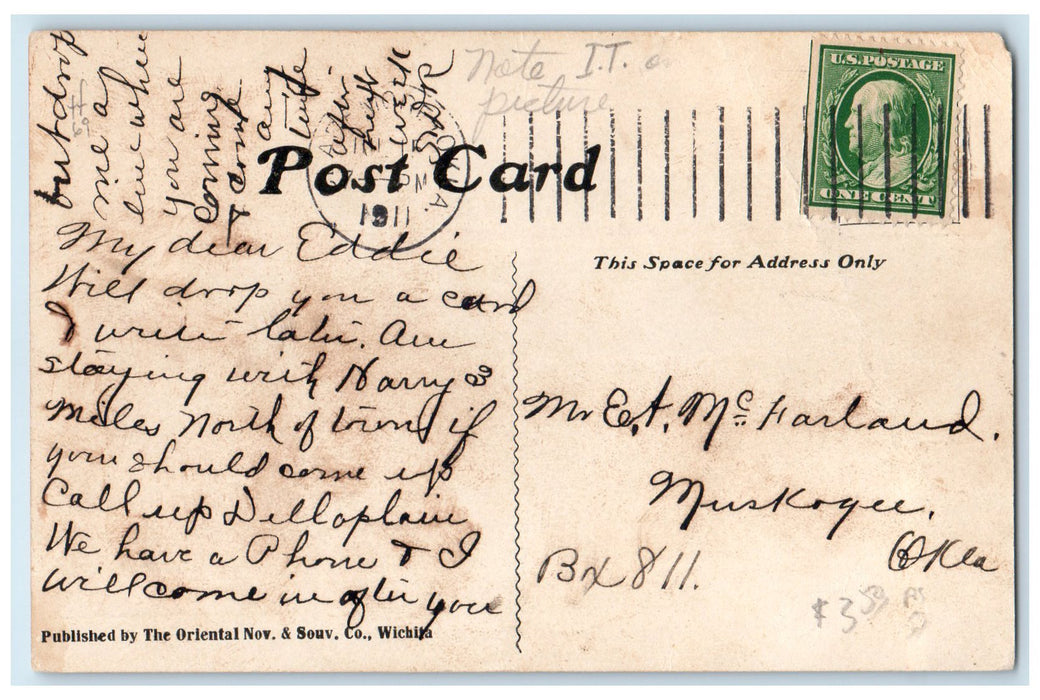 but drop
me a
line when
you are
coming
& cant
any
wife
after
next
week
Note I.T. on
picture
U.S. POSTAGE
ONE CENT
OKLA.
1911
Post Card
This Space for Address Only
My dear Eddie
Will drop you a card
& write later. Am
staying with Harry 3
Miles North of town if
you should come up
Call up Delloplain
We have a Phone & I
will come in after you
Mr E. A. McFarland.
Muskogee,
Okla
Bx 811.
$3 50
Published by The Oriental Nov. & Souv. Co., Wichita